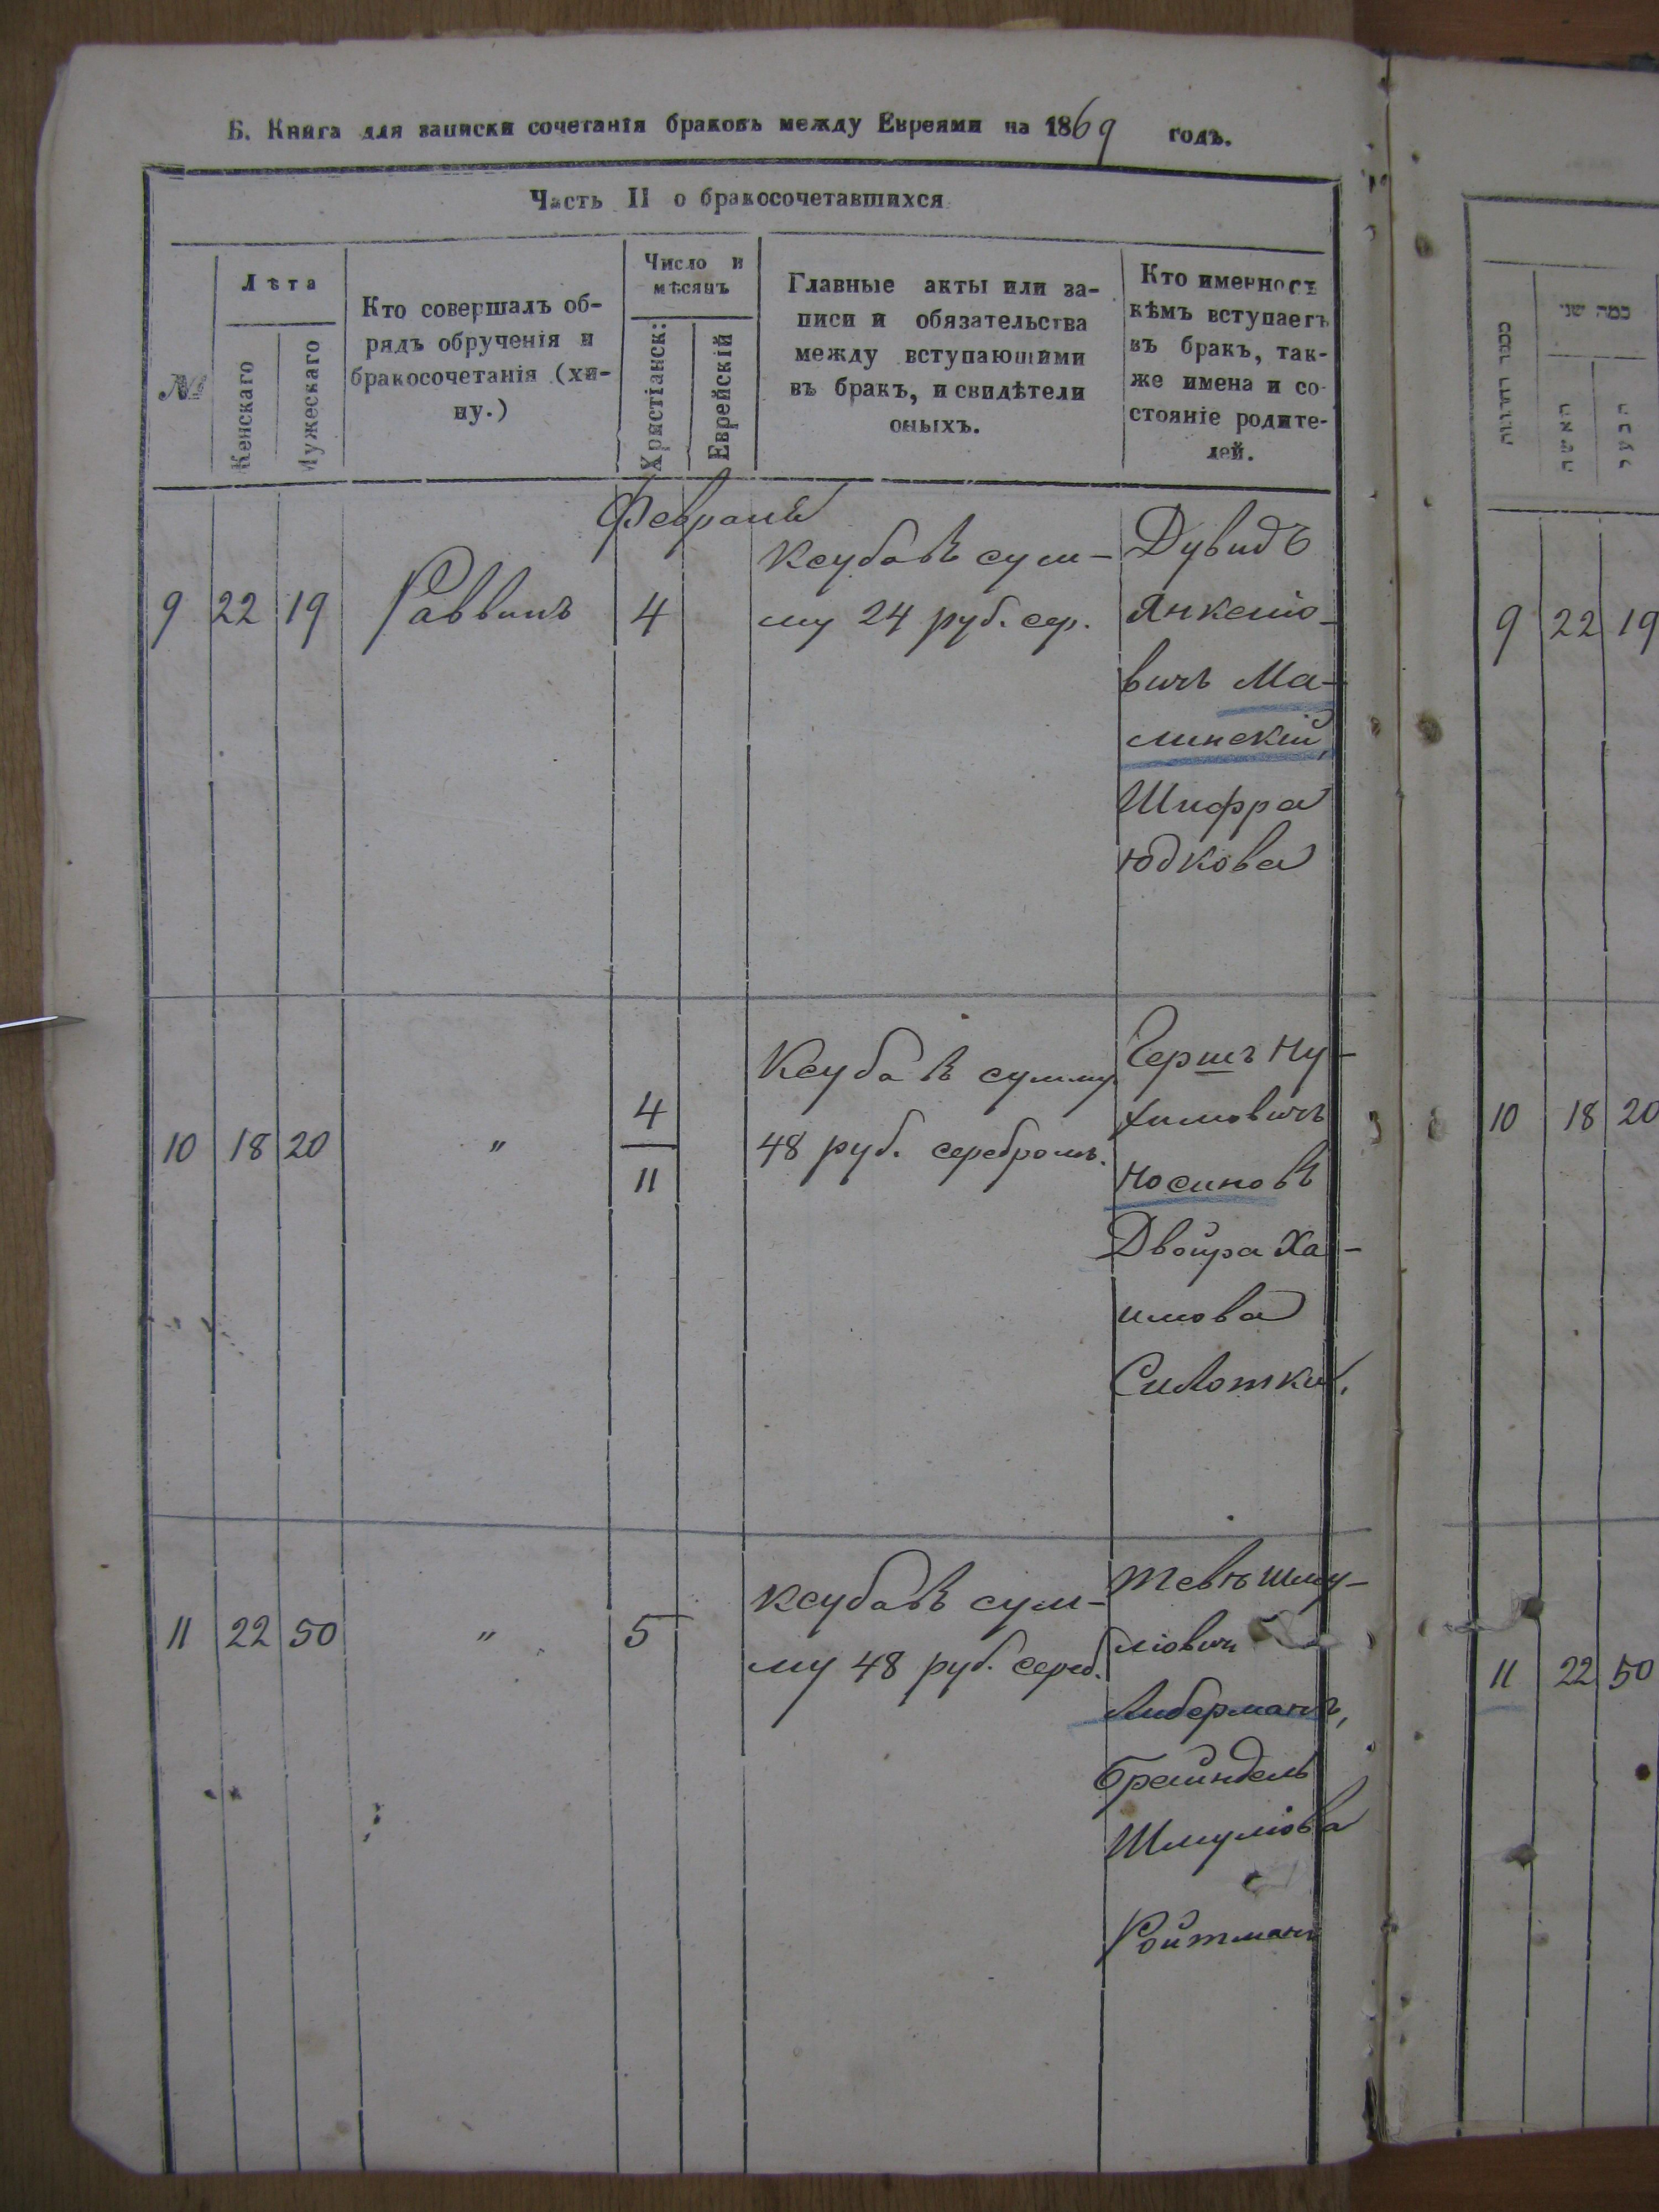 Б. Книга для записки сочетанія браковъ между Евреями на 1869 годъ.
Часть II о бракосочетавшихся
№
Лѣта
Женскаго
Мужескаго
Кто совершалъ об-
рядъ обрученія и
бракосочетанія (хи-
пу.)
Число и
мѣсяцъ
Христіанск:
Еврейскій
Главные акты или за-
писи и обязательства
между вступающими
въ бракъ, и свидѣтели
оныхъ.
Кто именно съ
кѣмъ вступаетъ
въ бракъ, так-
же имена и со-
стояніе родите-
лей.
Февраль
9 22 19 Раввинъ 4
Ксуба въ сум-
му 24 руб. сер.
Дувидъ
Янкеліо-
вичъ Ма-
линскій,
Шифра
Юдкова
10 18 20 " 4
11
Ксуба въ сумму
48 руб. серебромъ.
Гершъ Ну-
химовичъ
Носиновъ
Двойра Ха-
имова
11 22 50 " 5
Ксуба въ сум-
му 48 руб. сереб.
Тевъ Шму-
ліовичъ
Либерманъ,
Брейндель
Шмуліова
Ройтманъ
מספר החתונות
כמה שני
האשה
הבעל
9 22 19
10 18 20
11 22 50